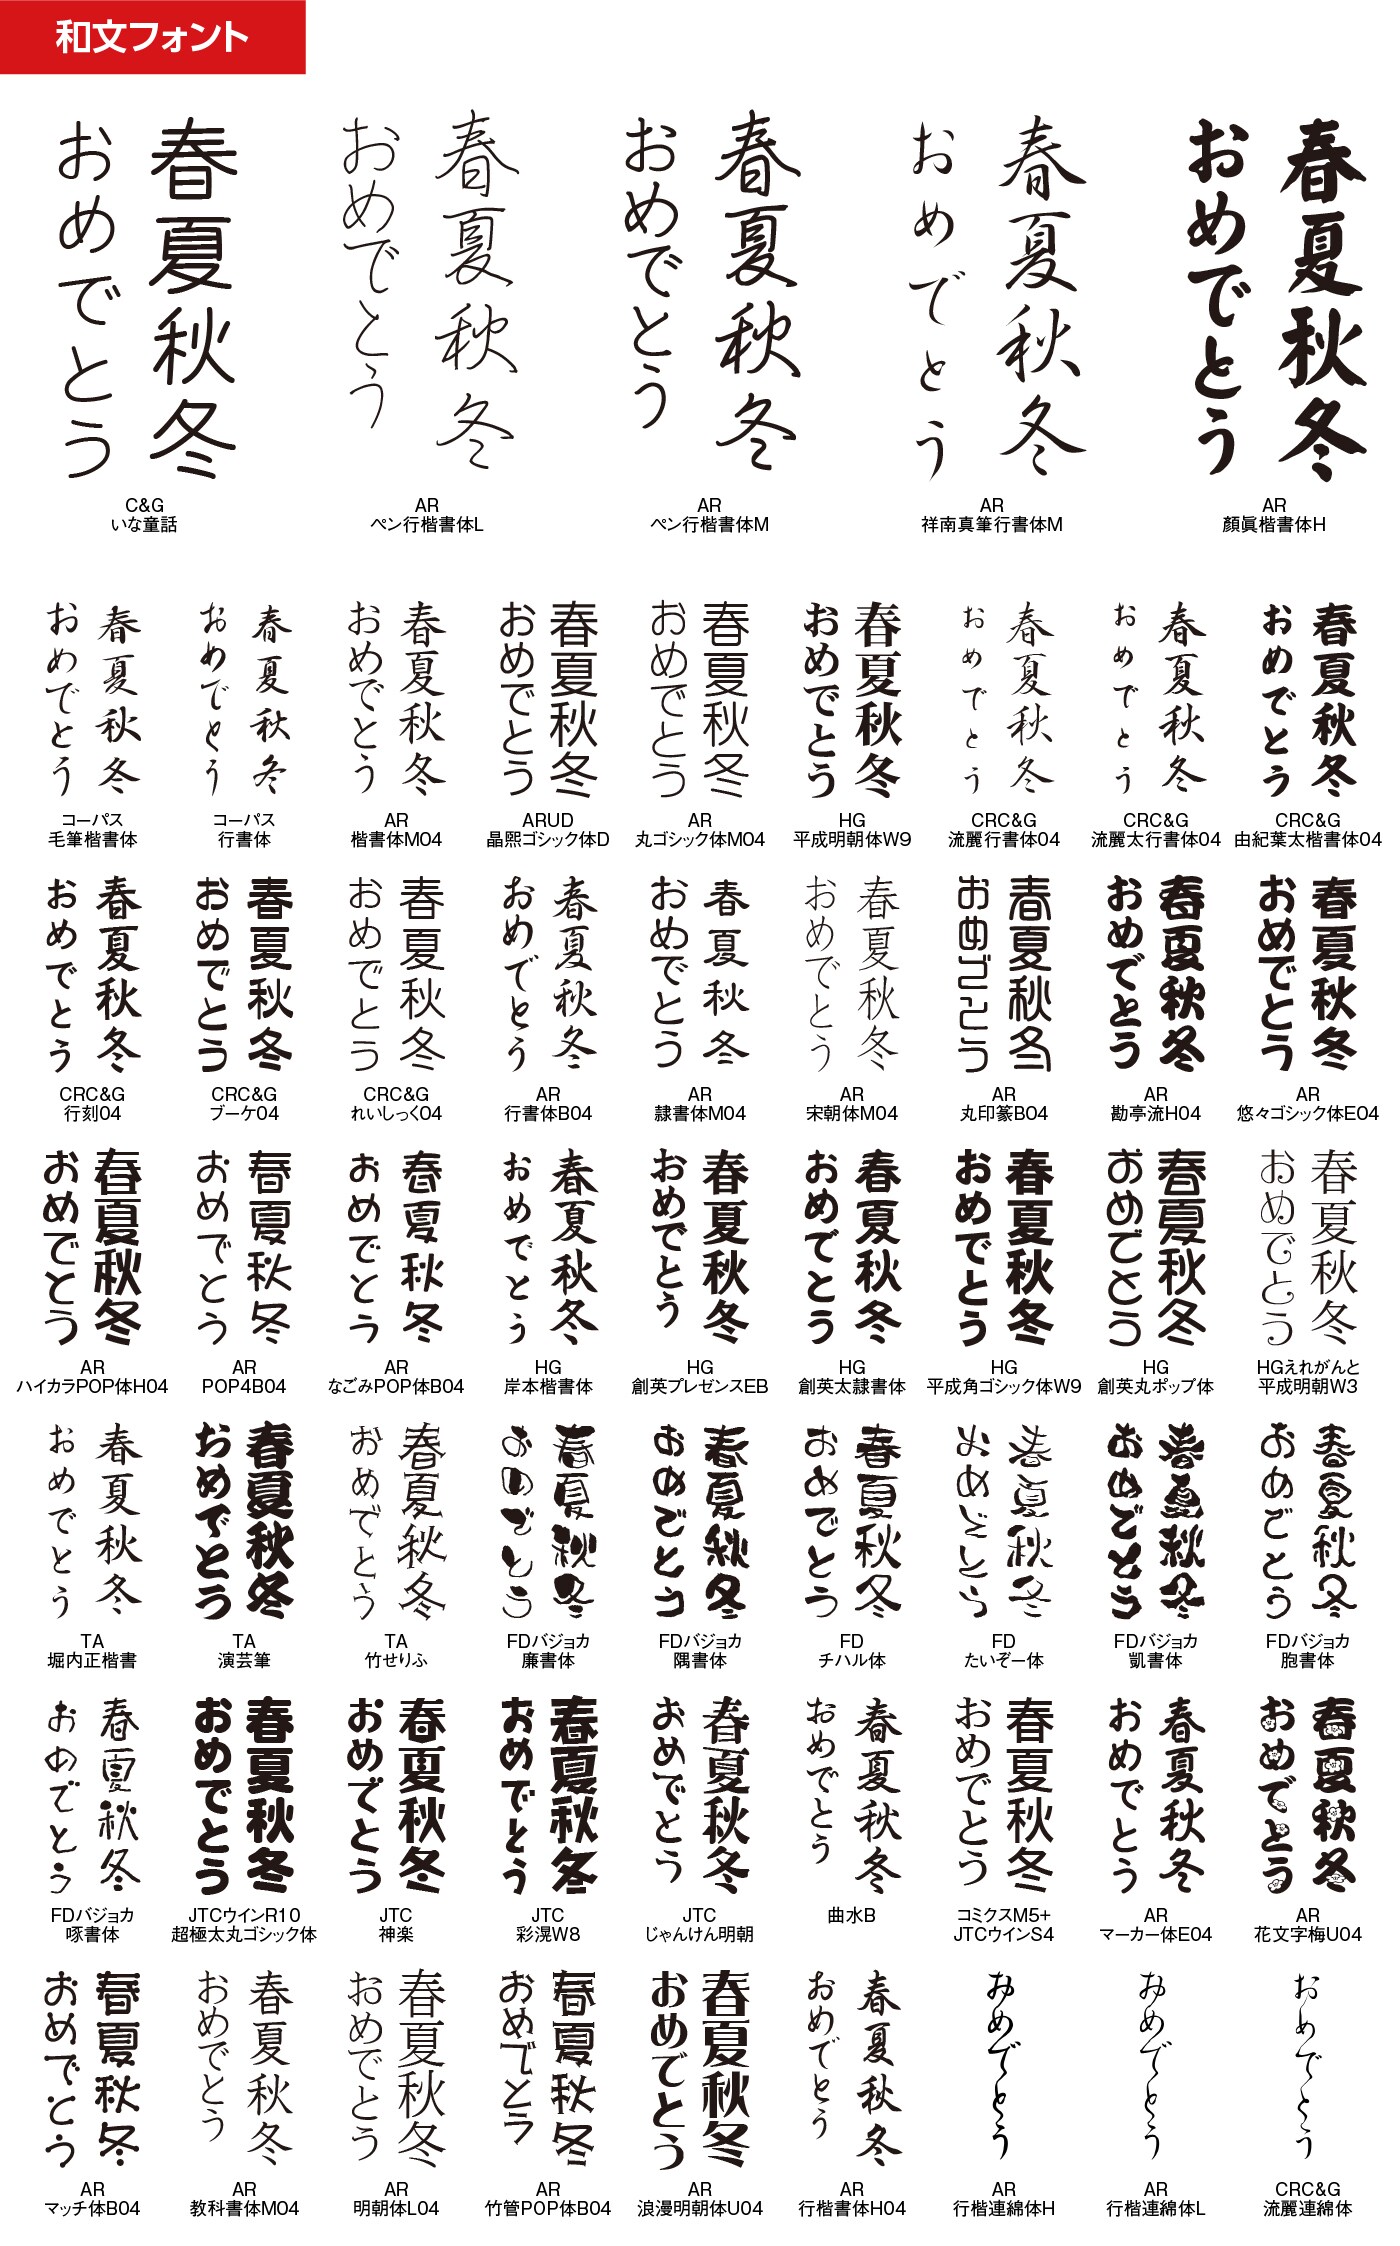 和文フォント
春夏秋冬
おめでとう
C&G
いな童話
春夏秋冬
おめでとう
AR
ペン行楷書体L
春夏秋冬
おめでとう
AR
ペン行楷書体M
春夏秋冬
おめでとう
AR
祥南真筆行書体M
春夏秋冬
おめでとう
AR
顏眞楷書体H
春夏秋冬
おめでとう
コーパス
毛筆楷書体
春夏秋冬
おめでとう
コーパス
行書体
春夏秋冬
おめでとう
AR
楷書体M04
春夏秋冬
おめでとう
ARUD
晶熙ゴシック体D
春夏秋冬
おめでとう
AR
丸ゴシック体M04
春夏秋冬
おめでとう
HG
平成明朝体W9
春夏秋冬
おめでとう
CRC&G
流麗行書体04
春夏秋冬
おめでとう
CRC&G
流麗太行書体04
春夏秋冬
おめでとう
CRC&G
由紀葉太楷書体04
春夏秋冬
おめでとう
CRC&G
行刻04
春夏秋冬
おめでとう
CRC&G
ブーケ04
春夏秋冬
おめでとう
CRC&G
れいしっく04
春夏秋冬
おめでとう
AR
行書体B04
春夏秋冬
おめでとう
AR
隷書体M04
春夏秋冬
おめでとう
AR
宋朝体M04
春夏秋冬
おめでとう
AR
丸印篆B04
春夏秋冬
おめでとう
AR
勘亭流H04
春夏秋冬
おめでとう
AR
悠々ゴシック体E04
春夏秋冬
おめでとう
AR
ハイカラPOP体H04
春夏秋冬
おめでとう
AR
POP4B04
春夏秋冬
おめでとう
AR
なごみPOP体B04
春夏秋冬
おめでとう
HG
岸本楷書体
春夏秋冬
おめでとう
HG
創英プレゼンスEB
春夏秋冬
おめでとう
HG
創英太隷書体
春夏秋冬
おめでとう
HG
平成角ゴシック体W9
春夏秋冬
おめでとう
HG
創英丸ポップ体
春夏秋冬
おめでとう
HGえれがんと
平成明朝W3
春夏秋冬
おめでとう
TA
堀内正楷書
春夏秋冬
おめでとう
TA
演芸筆
春夏秋冬
おめでとう
TA
竹せりふ
春夏秋冬
おめでとう
FDバジョカ
廉書体
春夏秋冬
おめでとう
FDバジョカ
隅書体
春夏秋冬
おめでとう
FD
チハル体
春夏秋冬
おめでとう
FD
たいぞー体
春夏秋冬
おめでとう
FDバジョカ
凱書体
春夏秋冬
おめでとう
FDバジョカ
胞書体
春夏秋冬
おめでとう
FDバジョカ
啄書体
春夏秋冬
おめでとう
JTCウインR10
超極太丸ゴシック体
春夏秋冬
おめでとう
JTC
神楽
春夏秋冬
おめでとう
JTC
彩滉W8
春夏秋冬
おめでとう
JTC
じゃんけん明朝
春夏秋冬
おめでとう
曲水B
春夏秋冬
おめでとう
コミクスM5+
JTCウインS4
春夏秋冬
おめでとう
AR
マーカー体E04
春夏秋冬
おめでとう
AR
花文字梅U04
春夏秋冬
おめでとう
AR
マッチ体B04
春夏秋冬
おめでとう
AR
教科書体M04
春夏秋冬
おめでとう
AR
明朝体L04
春夏秋冬
おめでとう
AR
竹管POP体B04
春夏秋冬
おめでとう
AR
浪漫明朝体U04
春夏秋冬
おめでとう
AR
行楷書体H04
おめでとう
AR
行楷連綿体H
おめでとう
AR
行楷連綿体L
おめでとう
CRC&G
流麗連綿体